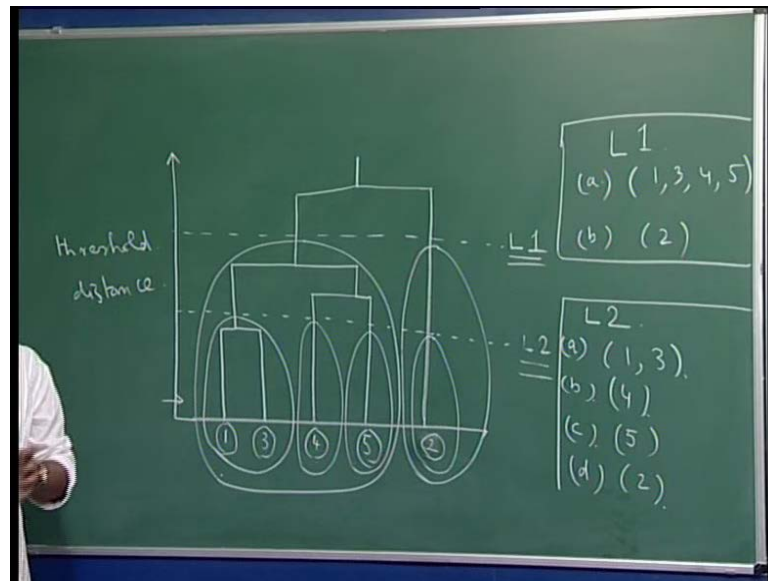 threshold
distance
L1
L2
1 3 4 5 2
L1
(a) (1, 3, 4, 5)
(b) (2)
L2
(a) (1, 3)
(b) (4)
(c) (5)
(d) (2)